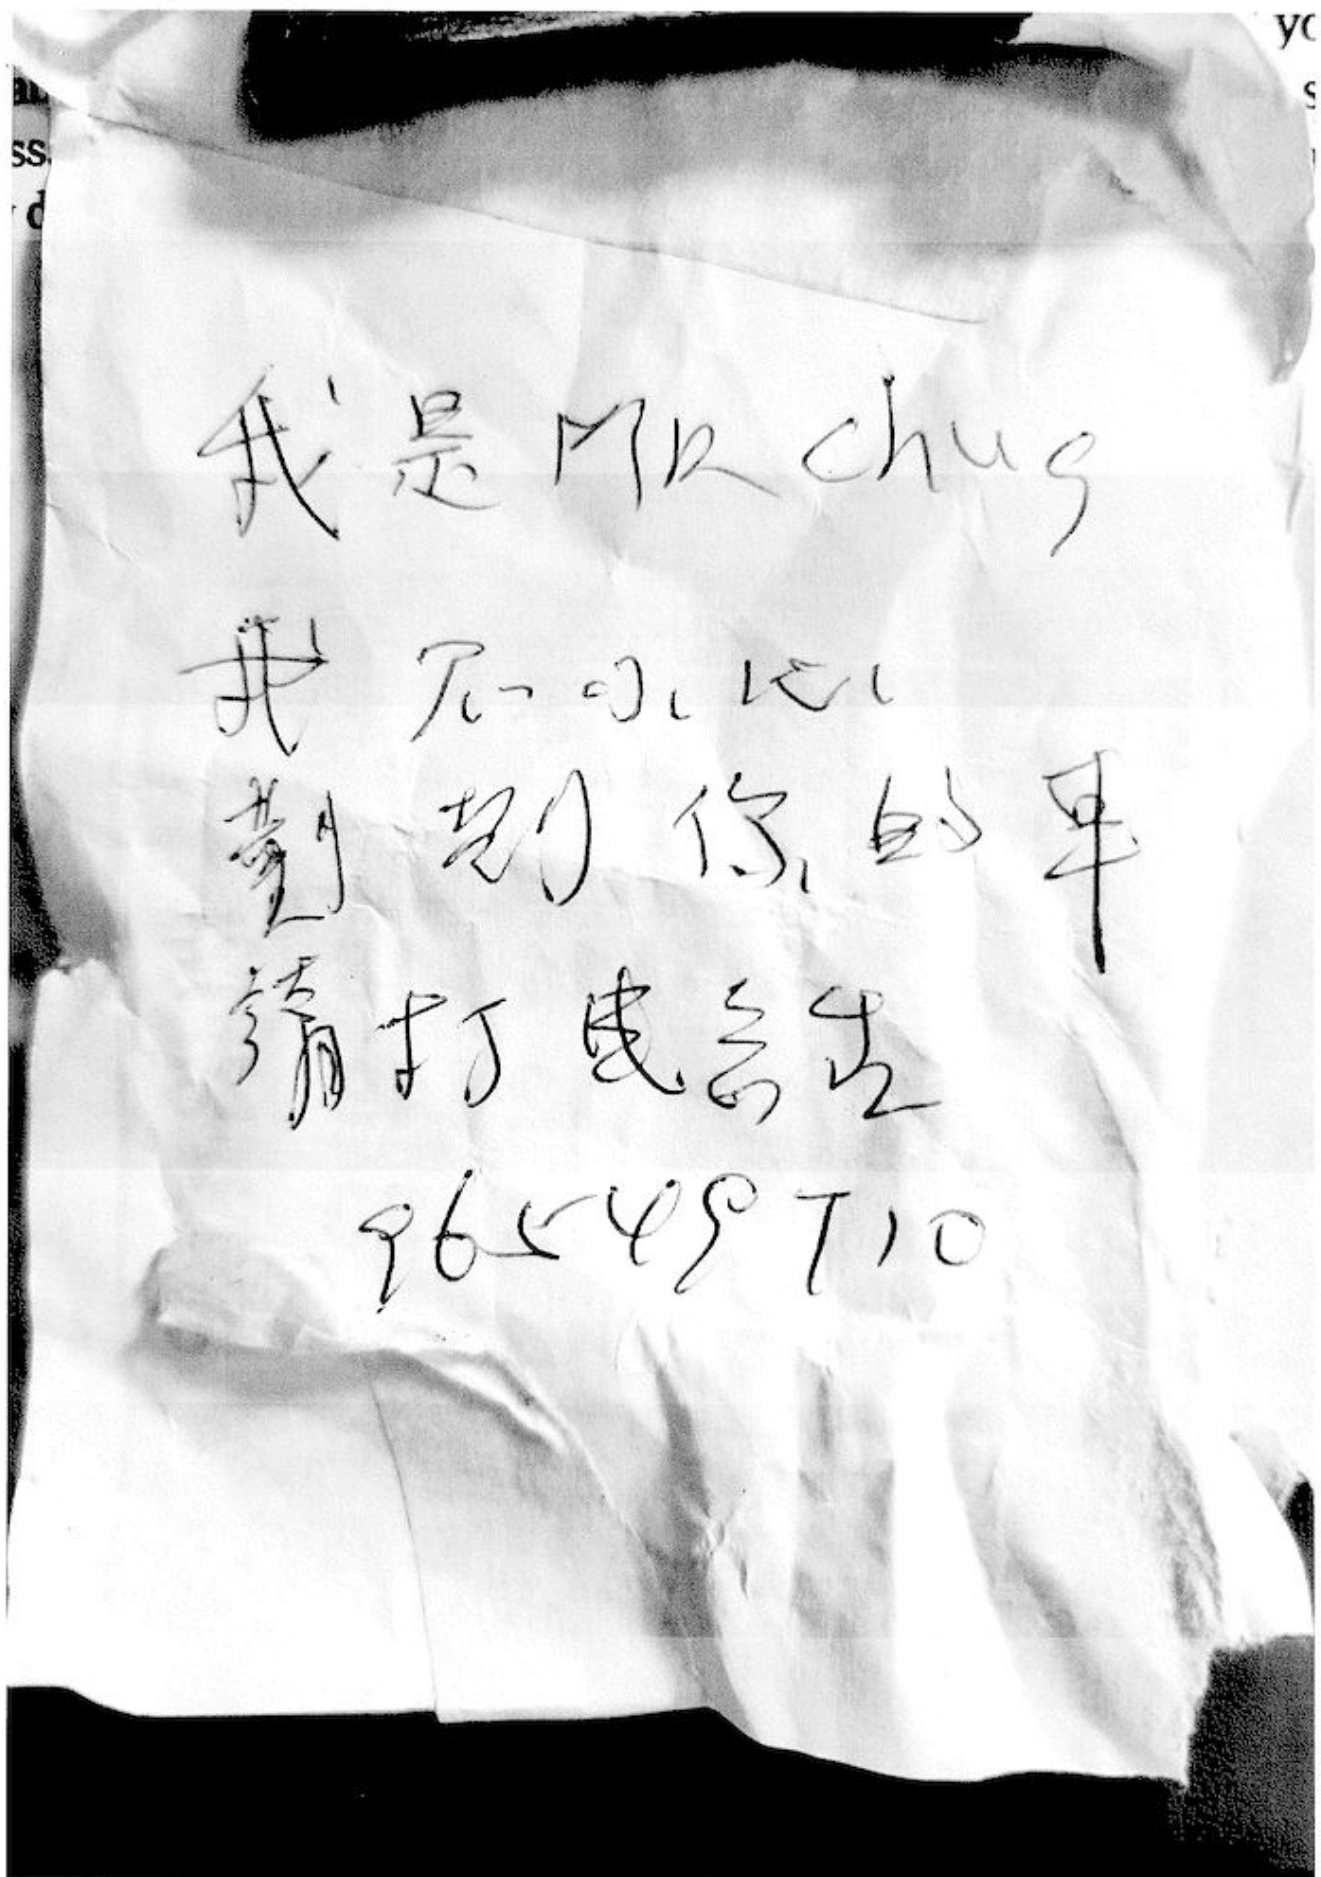 yo
s
ss.
d
我是 MR Chug
我不小心
劃到你的車
請打電話
96549710